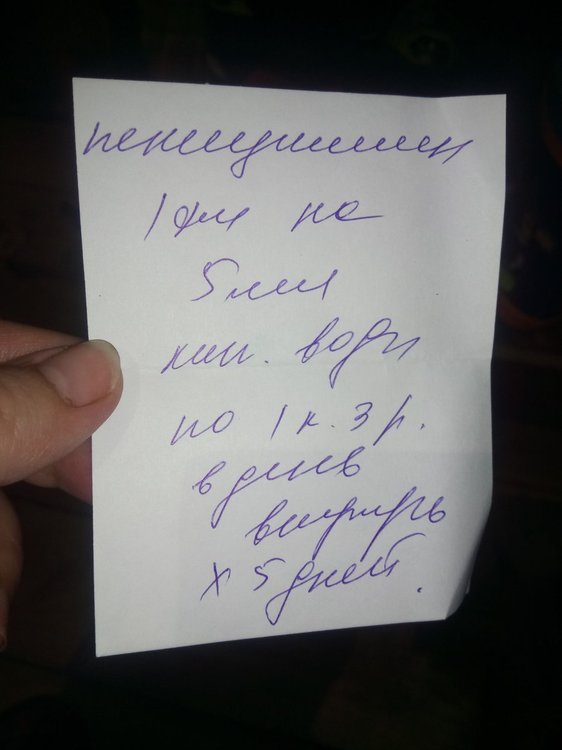 пенициллин
1 фл на
5 мл
кип. воды
по 1 к. 3 р.
в день
внутрь
х 5 дней.